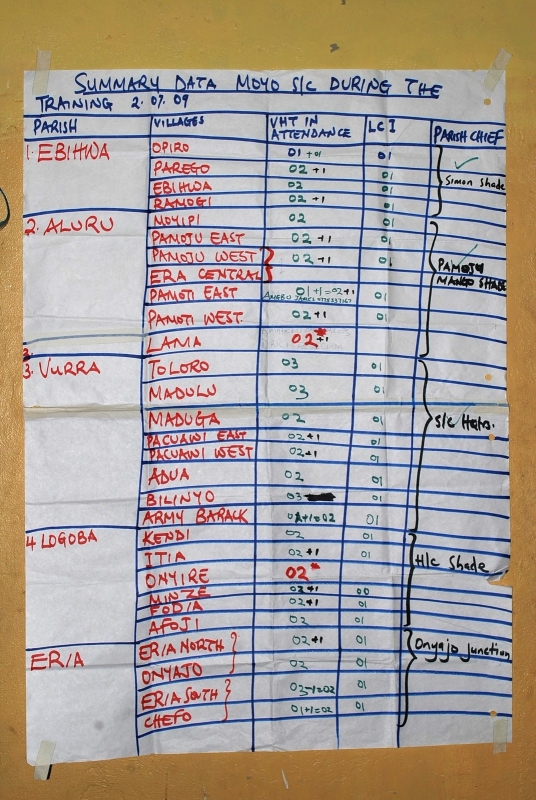 SUMMARY DATA MOYO S/C DURING THE
TRAINING 2.07.09
PARISH VILLAGES VHT IN ATTENDANCE LC I PARISH CHIEF
1. EBIHWA OPIRO 01 +01 01
PAREGO 02 +1 01 Simon Shade
EBIHWA 02 01
RAMOGI 02 +1 01
2. ALURU MOYIPI 02 01
PAMOJU EAST 02 +1 01
PAMOJU WEST 02 +1 01 PAMOJU
ERA CENTRAL MANGO SHADE
PAMOTI EAST 01+1=02+1 01
PAMOTI WEST 02 +1 01
LAMA 02* +1
3. VURRA TOLORO 03 01
MADULU 03 01
MADUGA 02 01 S/C Hqtrs.
PACUAWI EAST 02+1 01
PACUAWI WEST 02+1 01
ADUA 02 01
BILINYO 03 01
ARMY BARACK +1=02 01
4 LOGOBA KENDI 02 01
ITIA 02 +1 01 H/c Shade
ONYIRE 02*
MINZE 02+1 00
FODIA 02 +1 01
AFOJI 02 01
ERIA ERIA NORTH 02 +1 01 Onyajo Junction
ONYAJO 02 01
ERIA SOUTH 01
CHEFO 01+1=02 01